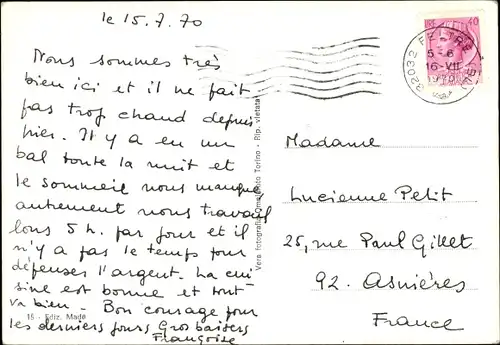 le 15.7.70
Nous sommes très
bien ici et il ne fait
pas trop chaud depuis
hier. Il y a eu un
bal toute la nuit et
le sommeil nous manque
autrement nous travail
lons 5 h. par jour et il
n'y a pas le temps pour
dépenser l'argent. La cui
sine est bonne et tout
va bien - Bon courage pour
les derniers jours Gros baisers
Françoise
15 - Ediz. Made
Vera fotografia Torino - Rip. vietata
40
32032 FELTRE
5-6
16-VII
1970
Madame
Lucienne Petit
25, rue Paul Gillet
92. Asnières
France